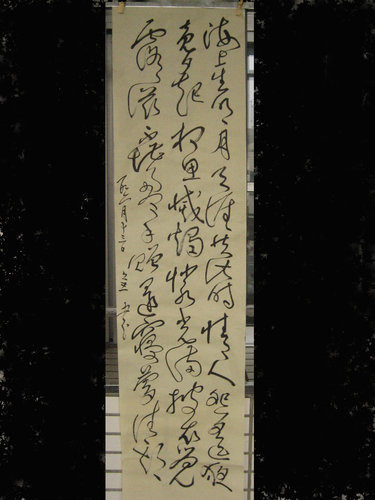 海上生明月天涯共此時情人怨遙夜
竟夕起相思滅燭憐光滿披衣覺
露滋不堪盈手贈還寢夢佳期
月十